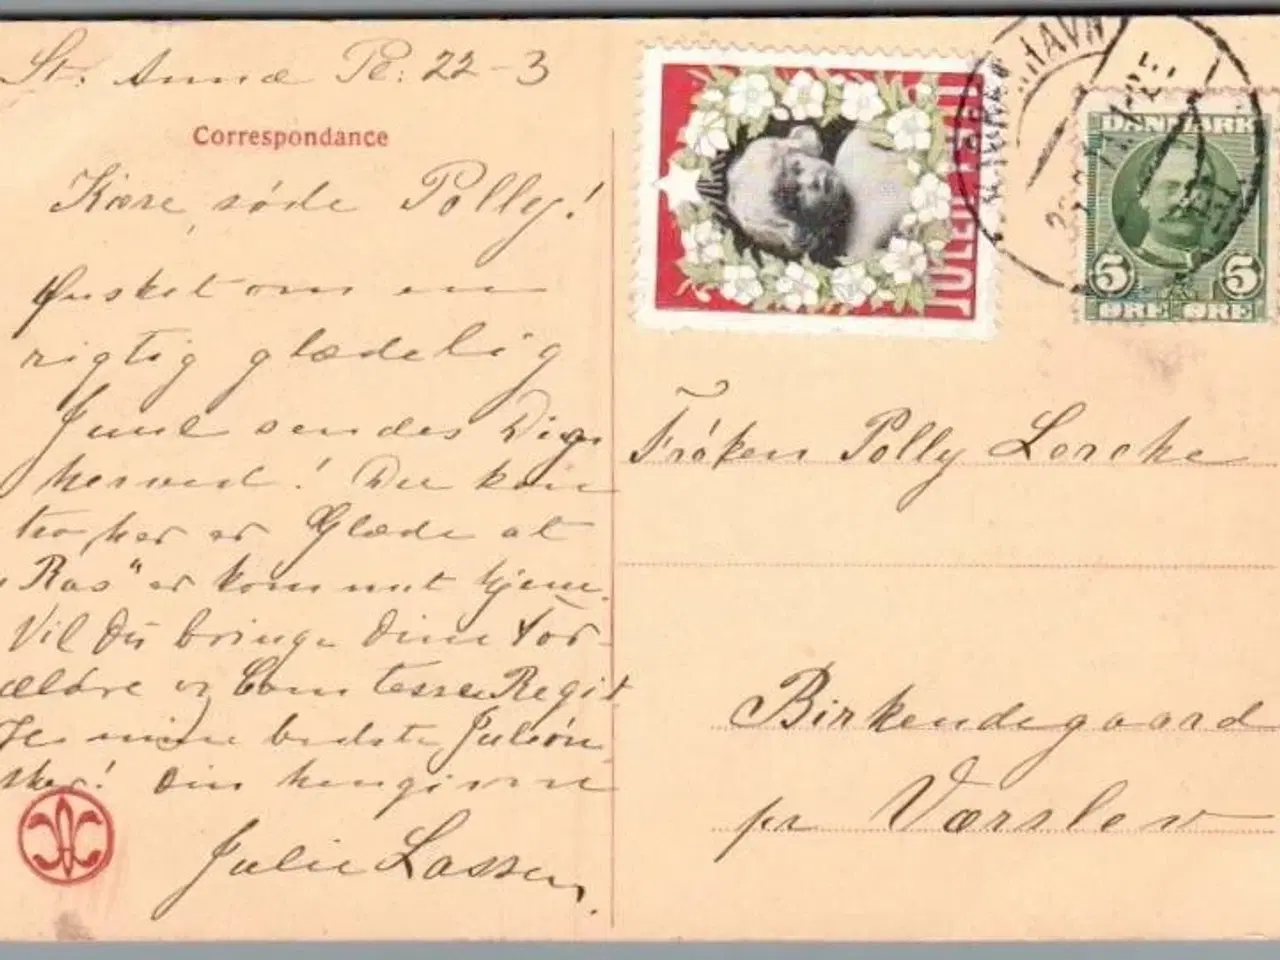 St. Annæ Pl: 22-3
Correspondance
Kære, søde Polly!
Ønsket om en
rigtig glædelig
Juul sendes Dig
herved! Du kan
tro, her er Glæde at
"Ras" er kommet hjem.
Vil Du bringe Dine For-
ældre og Comtesse Regit-
ze mine bedste Juleøn-
sker! Din hengivne
Julie Lassen.
JULEN
KJØBENHAVN
DANMARK
5 5
ØRE ØRE
Frøken Polly Lerche
Birkendegaard
pr Værslev